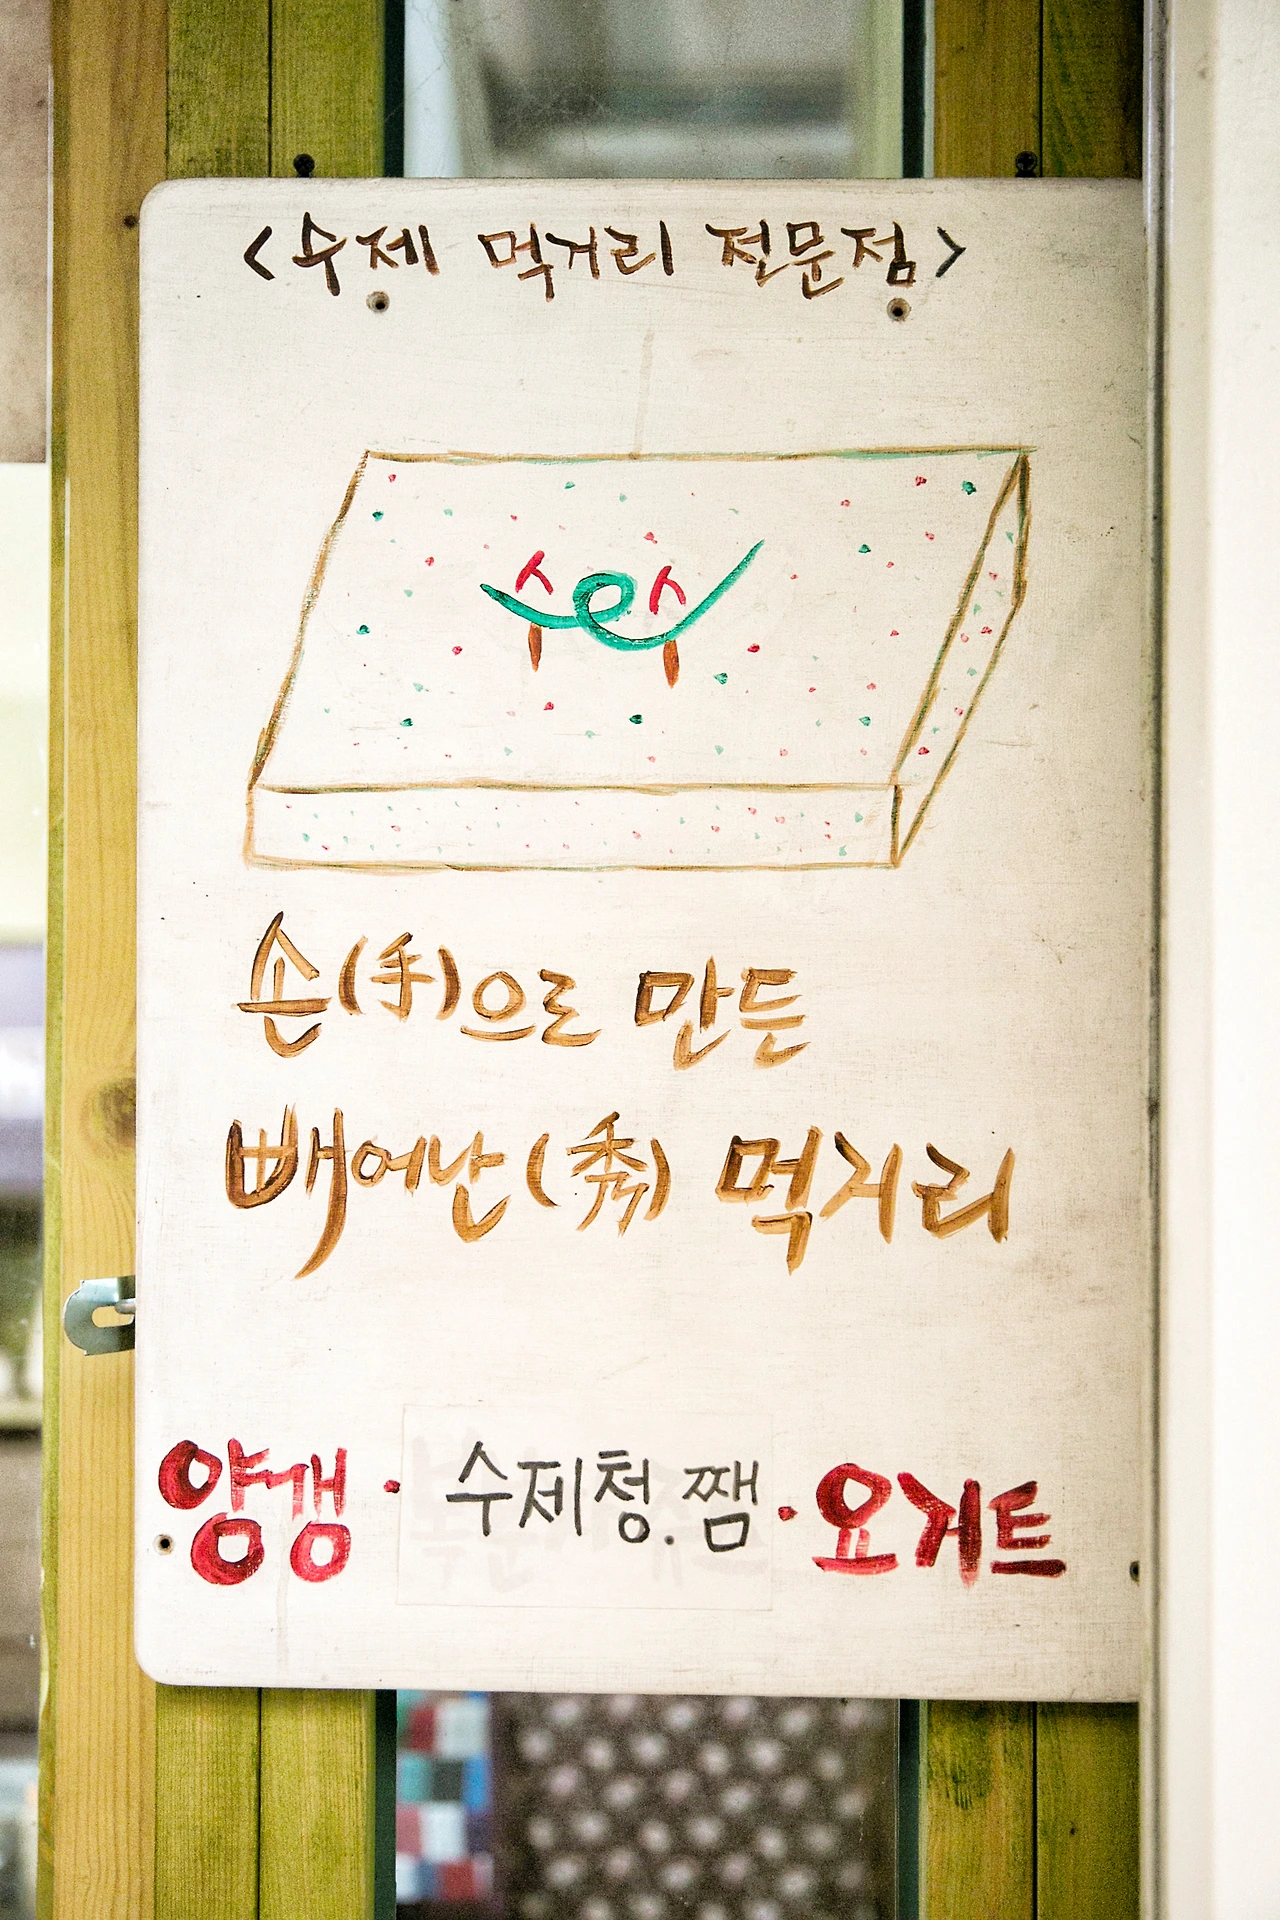 <수제 먹거리 전문점>
수수
손(手)으로 만든
빼어난(秀) 먹거리
양갱 · 수제청.쨈 · 요거트